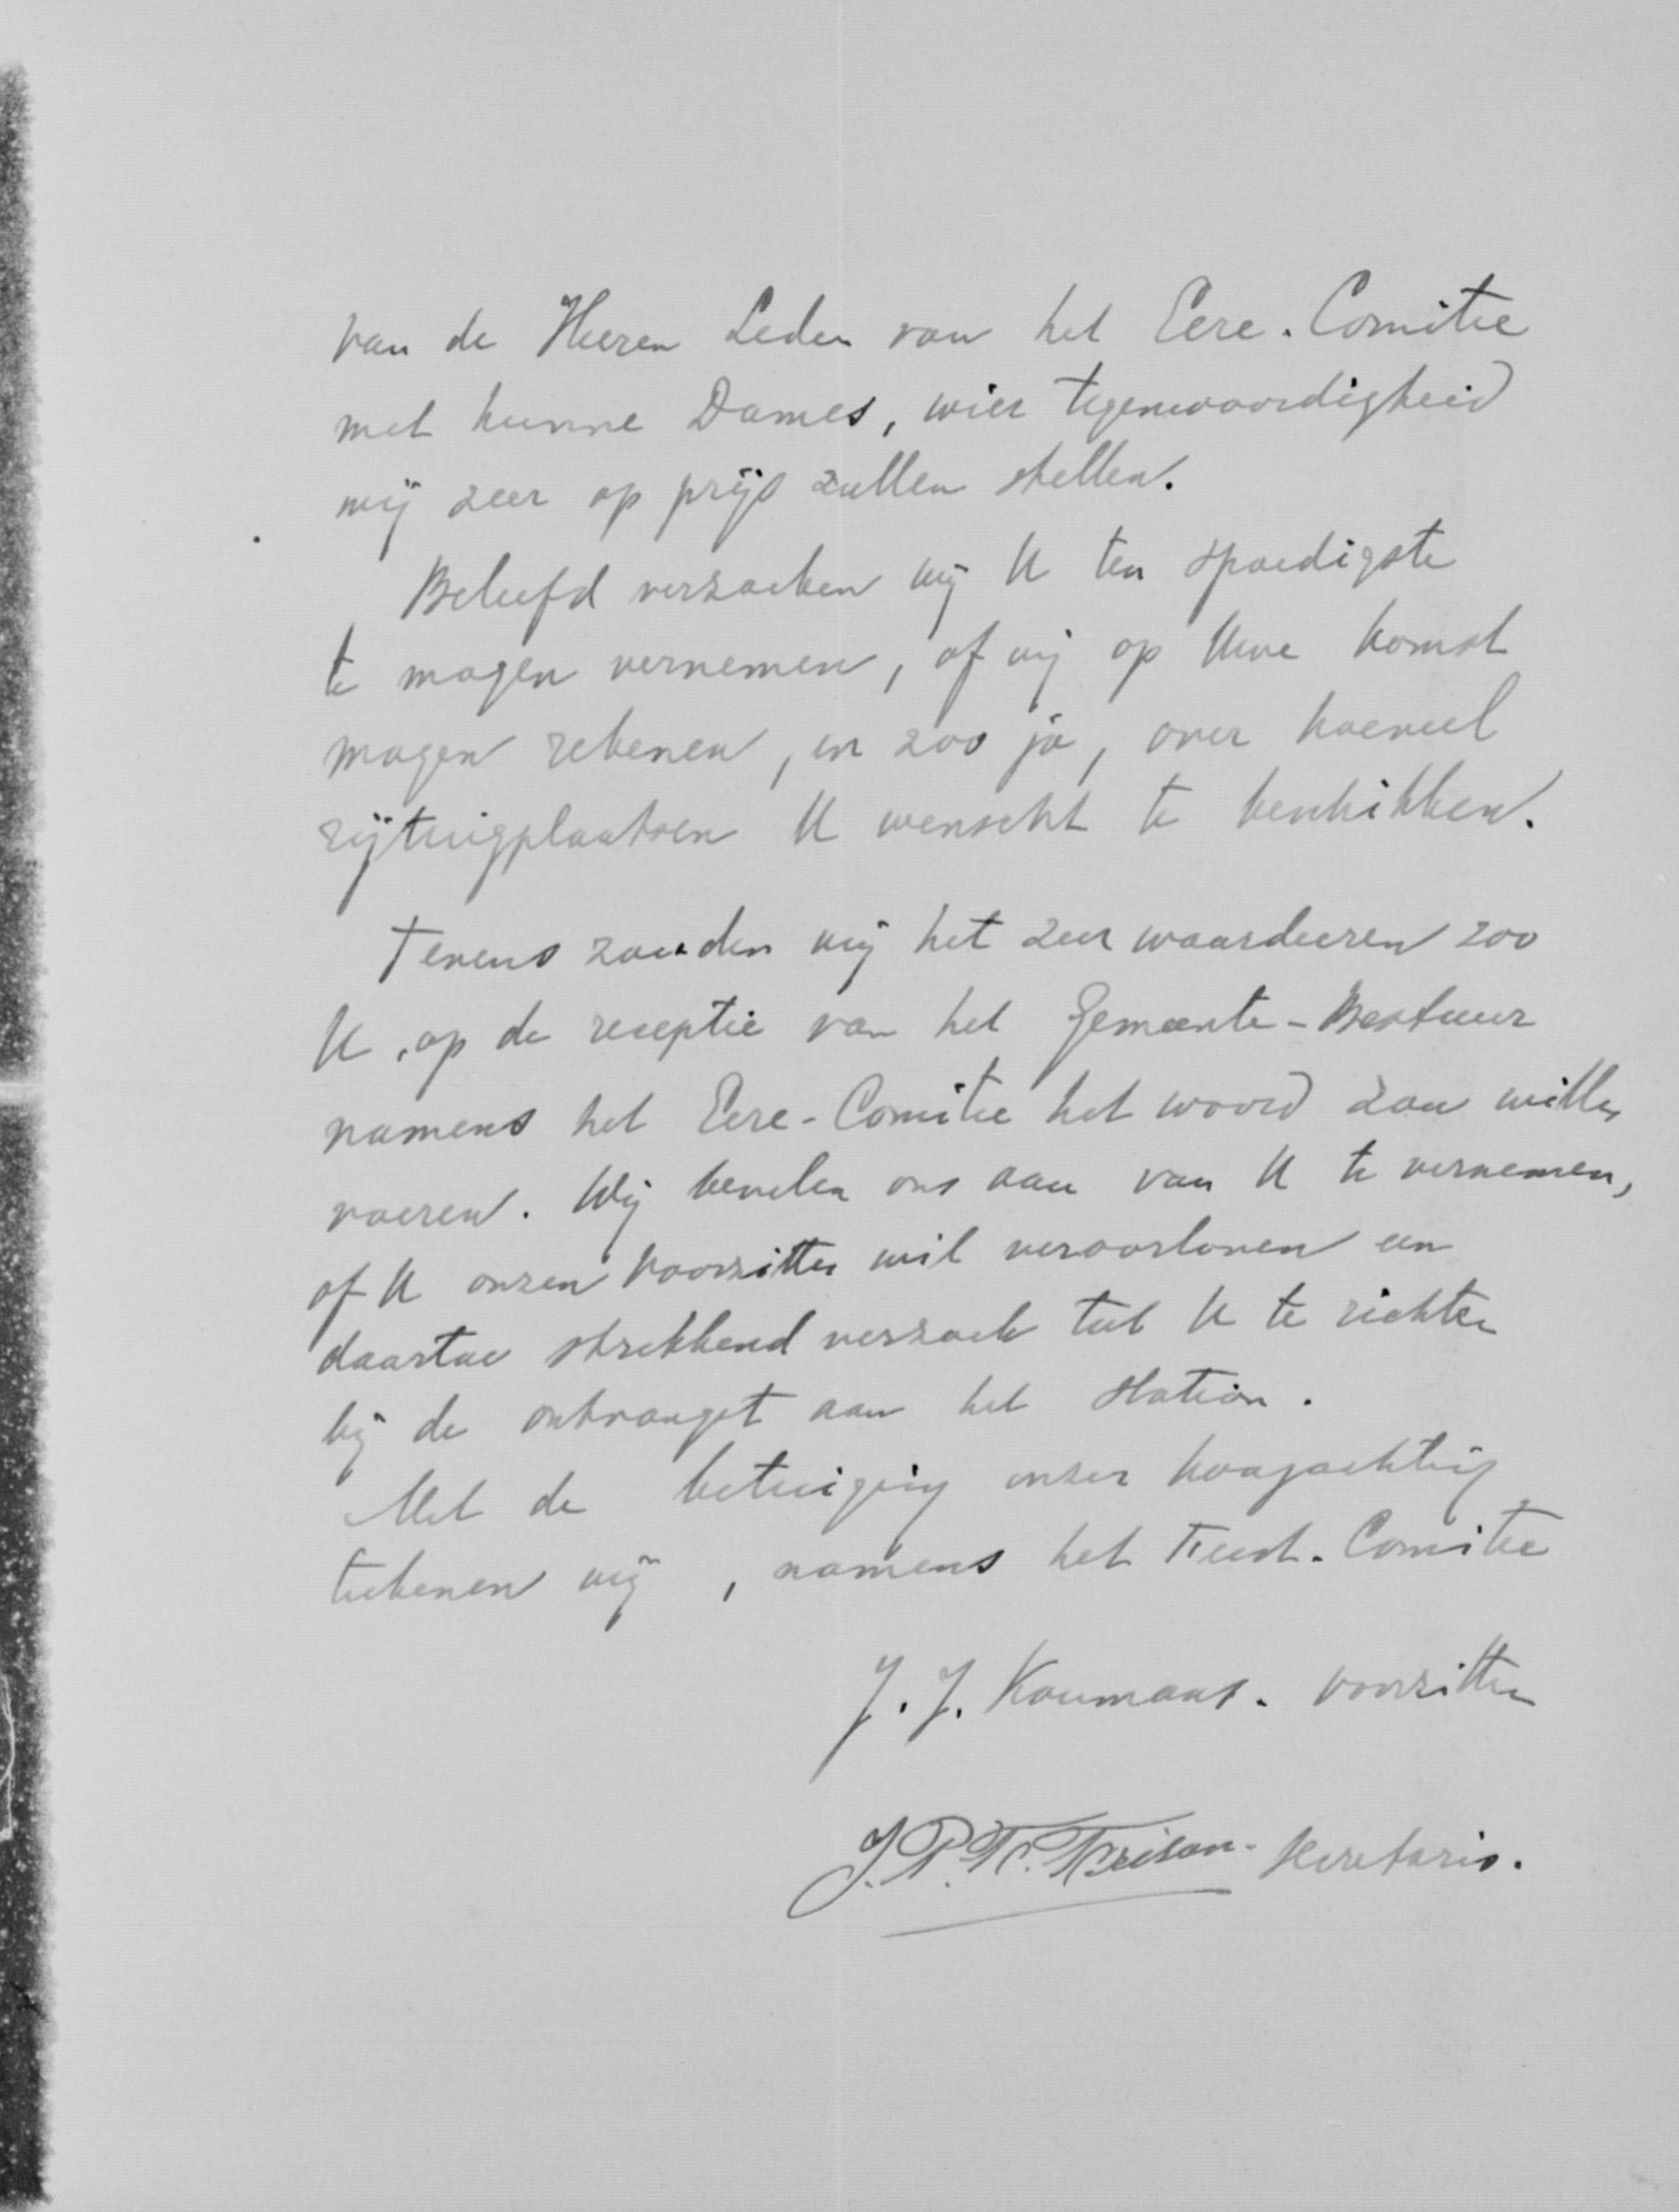 van de Heeren Leden van het Eere-Comitee
met hunne Dames, wier tegenwoordigheid
wij zeer op prijs zullen stellen.
Beleefd verzoeken wij U ten spoedigste
te mogen vernemen, of wij op Uwe komst
mogen rekenen, en zoo ja, over hoeveel
rijtuigplaatsen U wenscht te beschikken.
Tevens zouden wij het zeer waardeeren zoo
U, op de receptie van het Gemeente-Bestuur
namens het Eere-Comitee het woord zou willen
voeren. Wij bevelen ons aan van U te vernemen,
of U onzen Voorzitter wil veroorloven een
daartoe strekkend verzoek tot U te richten
bij de ontvangst aan het station.
Met de betuiging onzer hoogachting
teekenen wij, namens het Feest-Comitee
J. J. Koumans. voorzitter
J. P. Fr. secretaris.